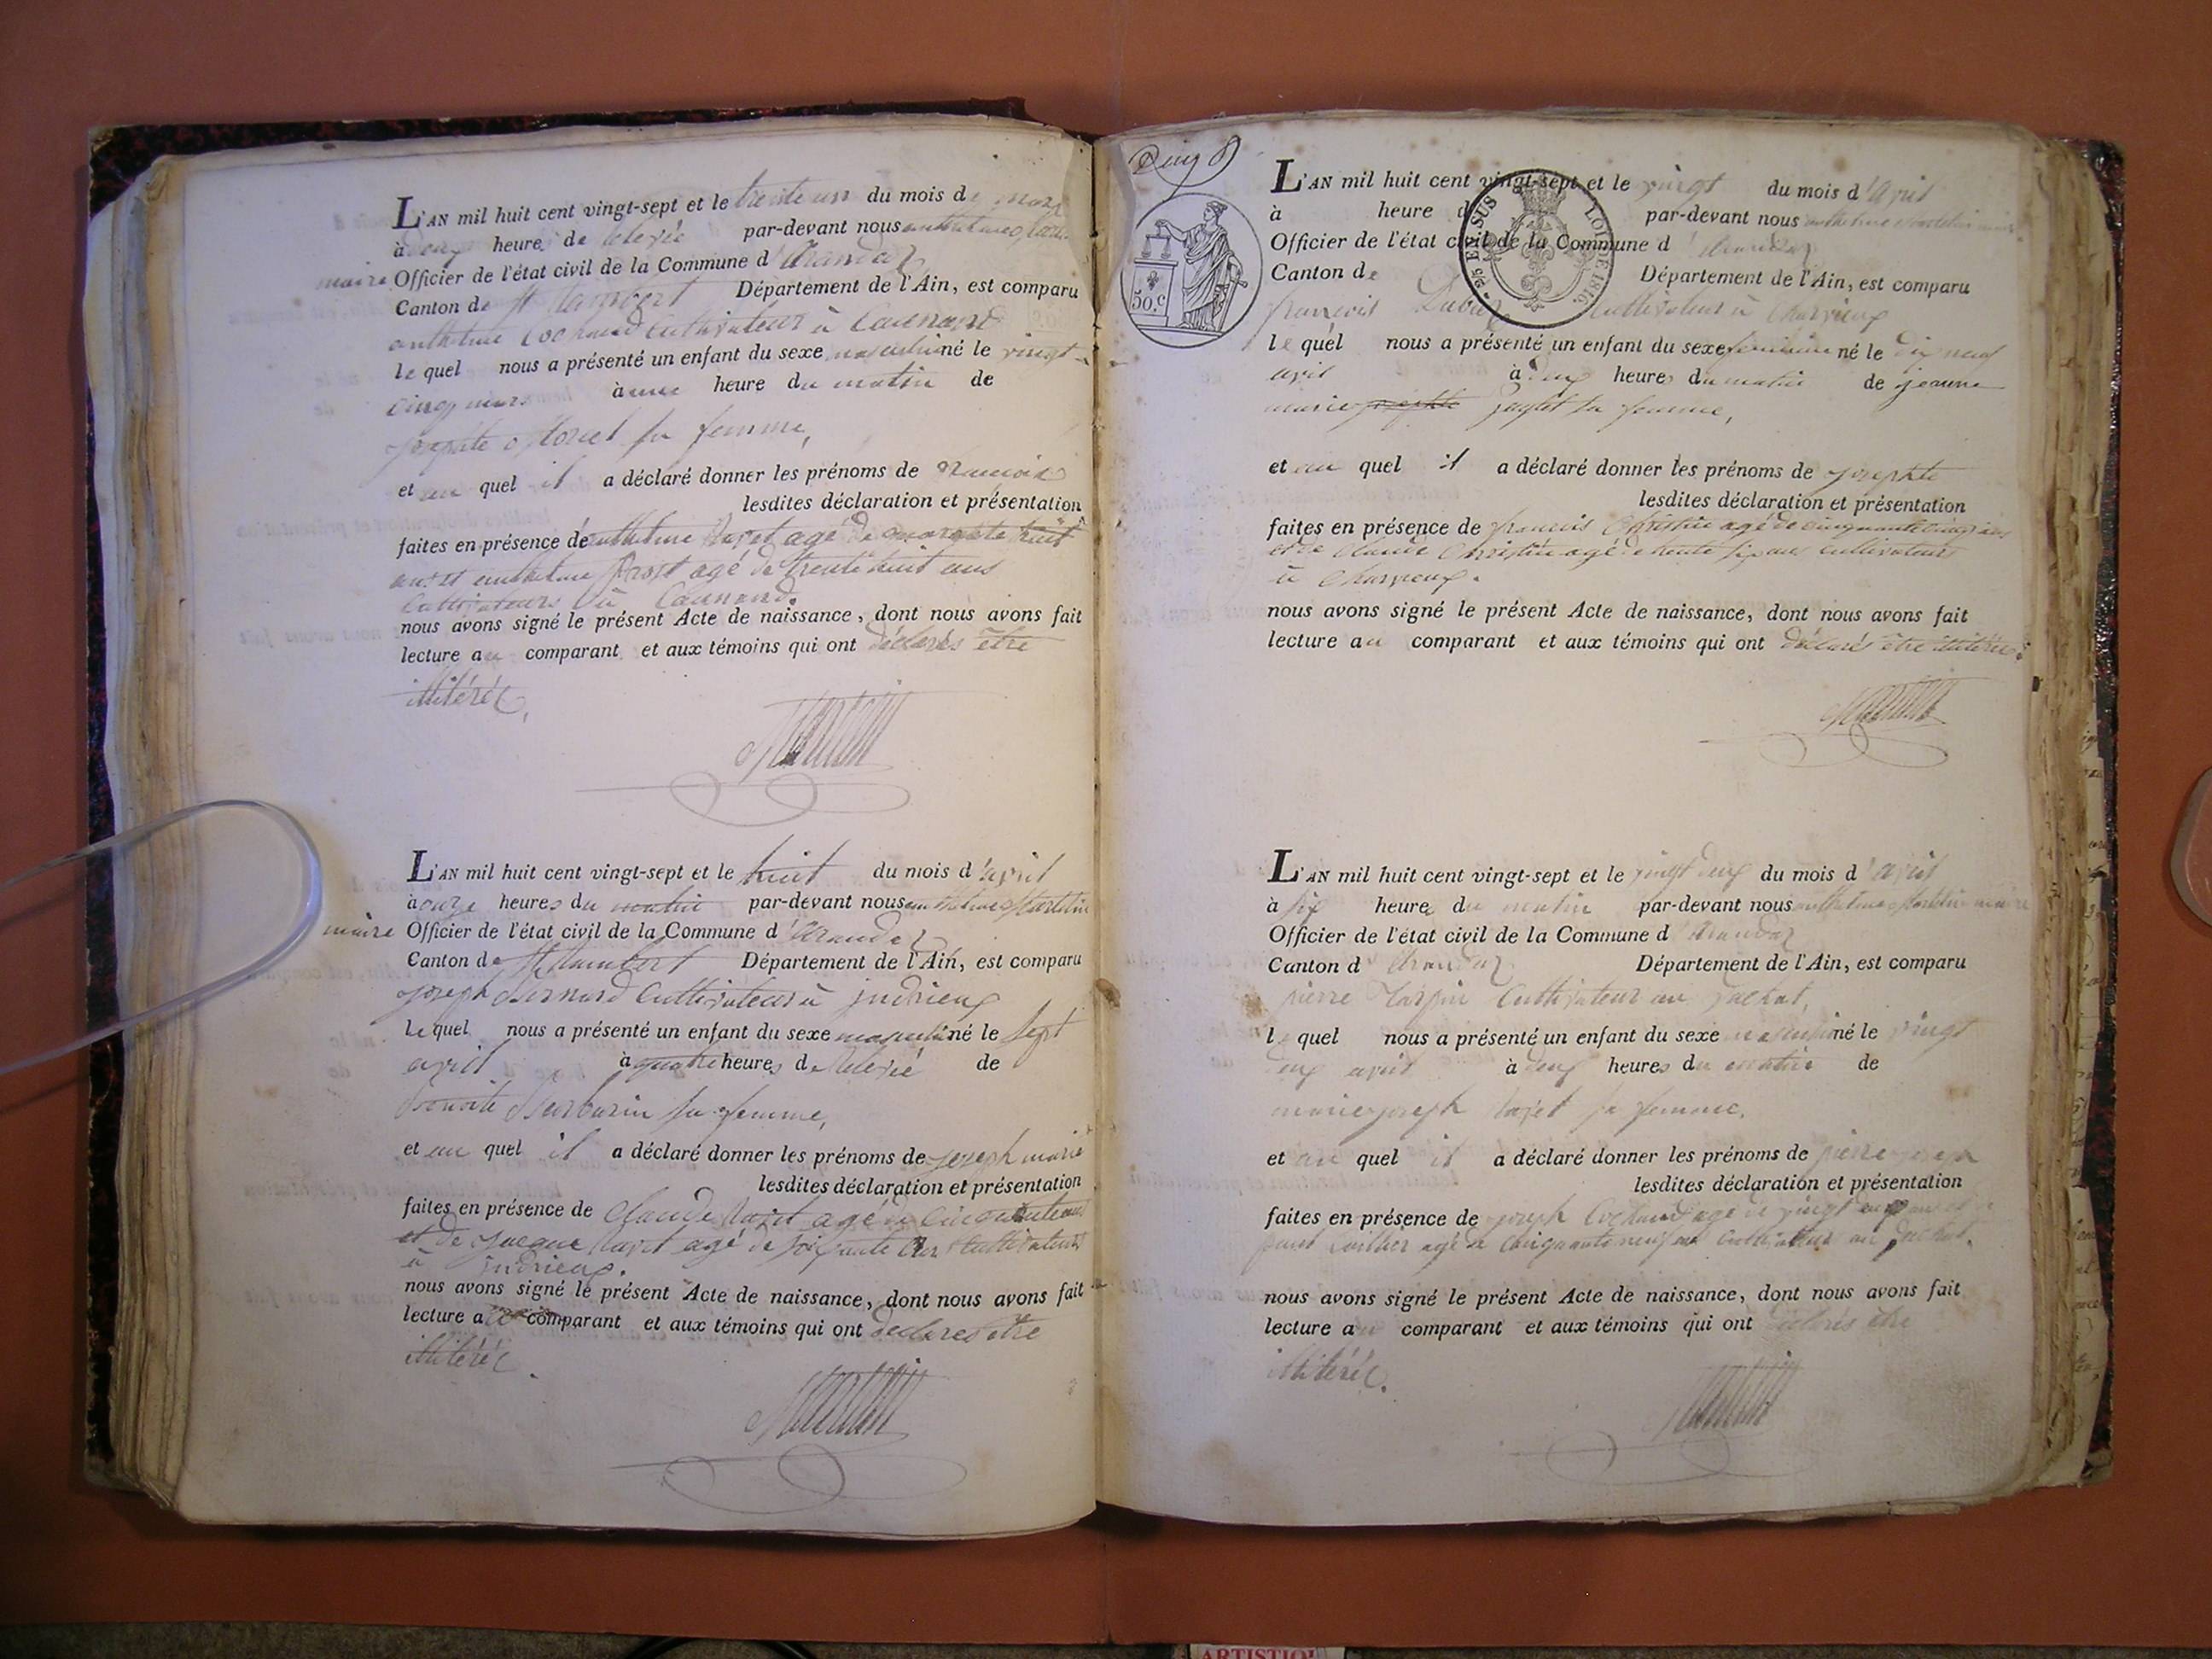 L'AN mil huit cent vingt-sept et le trente un du mois de mars
à deux heure de relevée par-devant nous anthelme
maire Officier de l'état civil de la Commune d'Arandaz
Canton de St Rambert Département de l'Ain, est comparu
anthelme Cochand Cultivateur à
le quel nous a présenté un enfant du sexe masculin né le vingt
cinq mars à une heure du matin de
josephte Morel sa femme,
et au quel il a déclaré donner les prénoms de francois
lesdites déclaration et présentation
faites en présence de anthelme agé de quarante huit
ans et anthelme agé de trente huit ans
Cultivateurs à
nous avons signé le présent Acte de naissance, dont nous avons fait
lecture au comparant et aux témoins qui ont déclarés être
illitéré.
Martelin
L'AN mil huit cent vingt-sept et le huit du mois d'avril
à onze heures du matin par-devant nous anthelme Martelin
maire Officier de l'état civil de la Commune d'Arandaz
Canton de St Rambert Département de l'Ain, est comparu
joseph Bernard Cultivateur à indrieux
le quel nous a présenté un enfant du sexe masculin né le sept
avril à quatre heures de relevée de
Benoite sa femme,
et au quel il a déclaré donner les prénoms de joseph marie
lesdites déclaration et présentation
faites en présence de Claude agé de Cinquante ans
et de jacque agé de soixante ans Cultivateurs
à indrieux.
nous avons signé le présent Acte de naissance, dont nous avons fait
lecture au comparant et aux témoins qui ont declarés etre
illitéré.
Martelin
Deux
50.c
25 EN SUS LOI DE 1816.
L'AN mil huit cent vingt-sept et le vingt du mois d'avril
à heure d par-devant nous anthelme Martelin maire
Officier de l'état civil de la Commune d'Arandaz
Canton de Département de l'Ain, est comparu
francois Cultivateur à Charvieux
le quel nous a présenté un enfant du sexe feminin né le dix neuf
avril à deux heures du matin de jeanne
marie josephte sa femme,
et au quel il a déclaré donner les prénoms de josephte
lesdites déclaration et présentation
faites en présence de francois Christin agé de cinquante cinq ans
et de Claude Christin agé de trente six ans cultivateurs
à Charvieux.
nous avons signé le présent Acte de naissance, dont nous avons fait
lecture au comparant et aux témoins qui ont déclarés être illitéré.
Martelin
L'AN mil huit cent vingt-sept et le vingt deux du mois d'avril
à six heure du matin par-devant nous anthelme Martelin maire
Officier de l'état civil de la Commune d'Arandaz
Canton d'Arandaz Département de l'Ain, est comparu
pierre Tarpin Cultivateur au
le quel nous a présenté un enfant du sexe masculin né le vingt
deux avril à deux heures du matin de
marie joseph sa femme.
et au quel il a déclaré donner les prénoms de pierre joseph
lesdites déclaration et présentation
faites en présence de joseph Cochand agé de vingt ans et
agé de Cinquante neuf ans Cultivateur au
nous avons signé le présent Acte de naissance, dont nous avons fait
lecture au comparant et aux témoins qui ont déclarés etre
illitéré.
Martelin